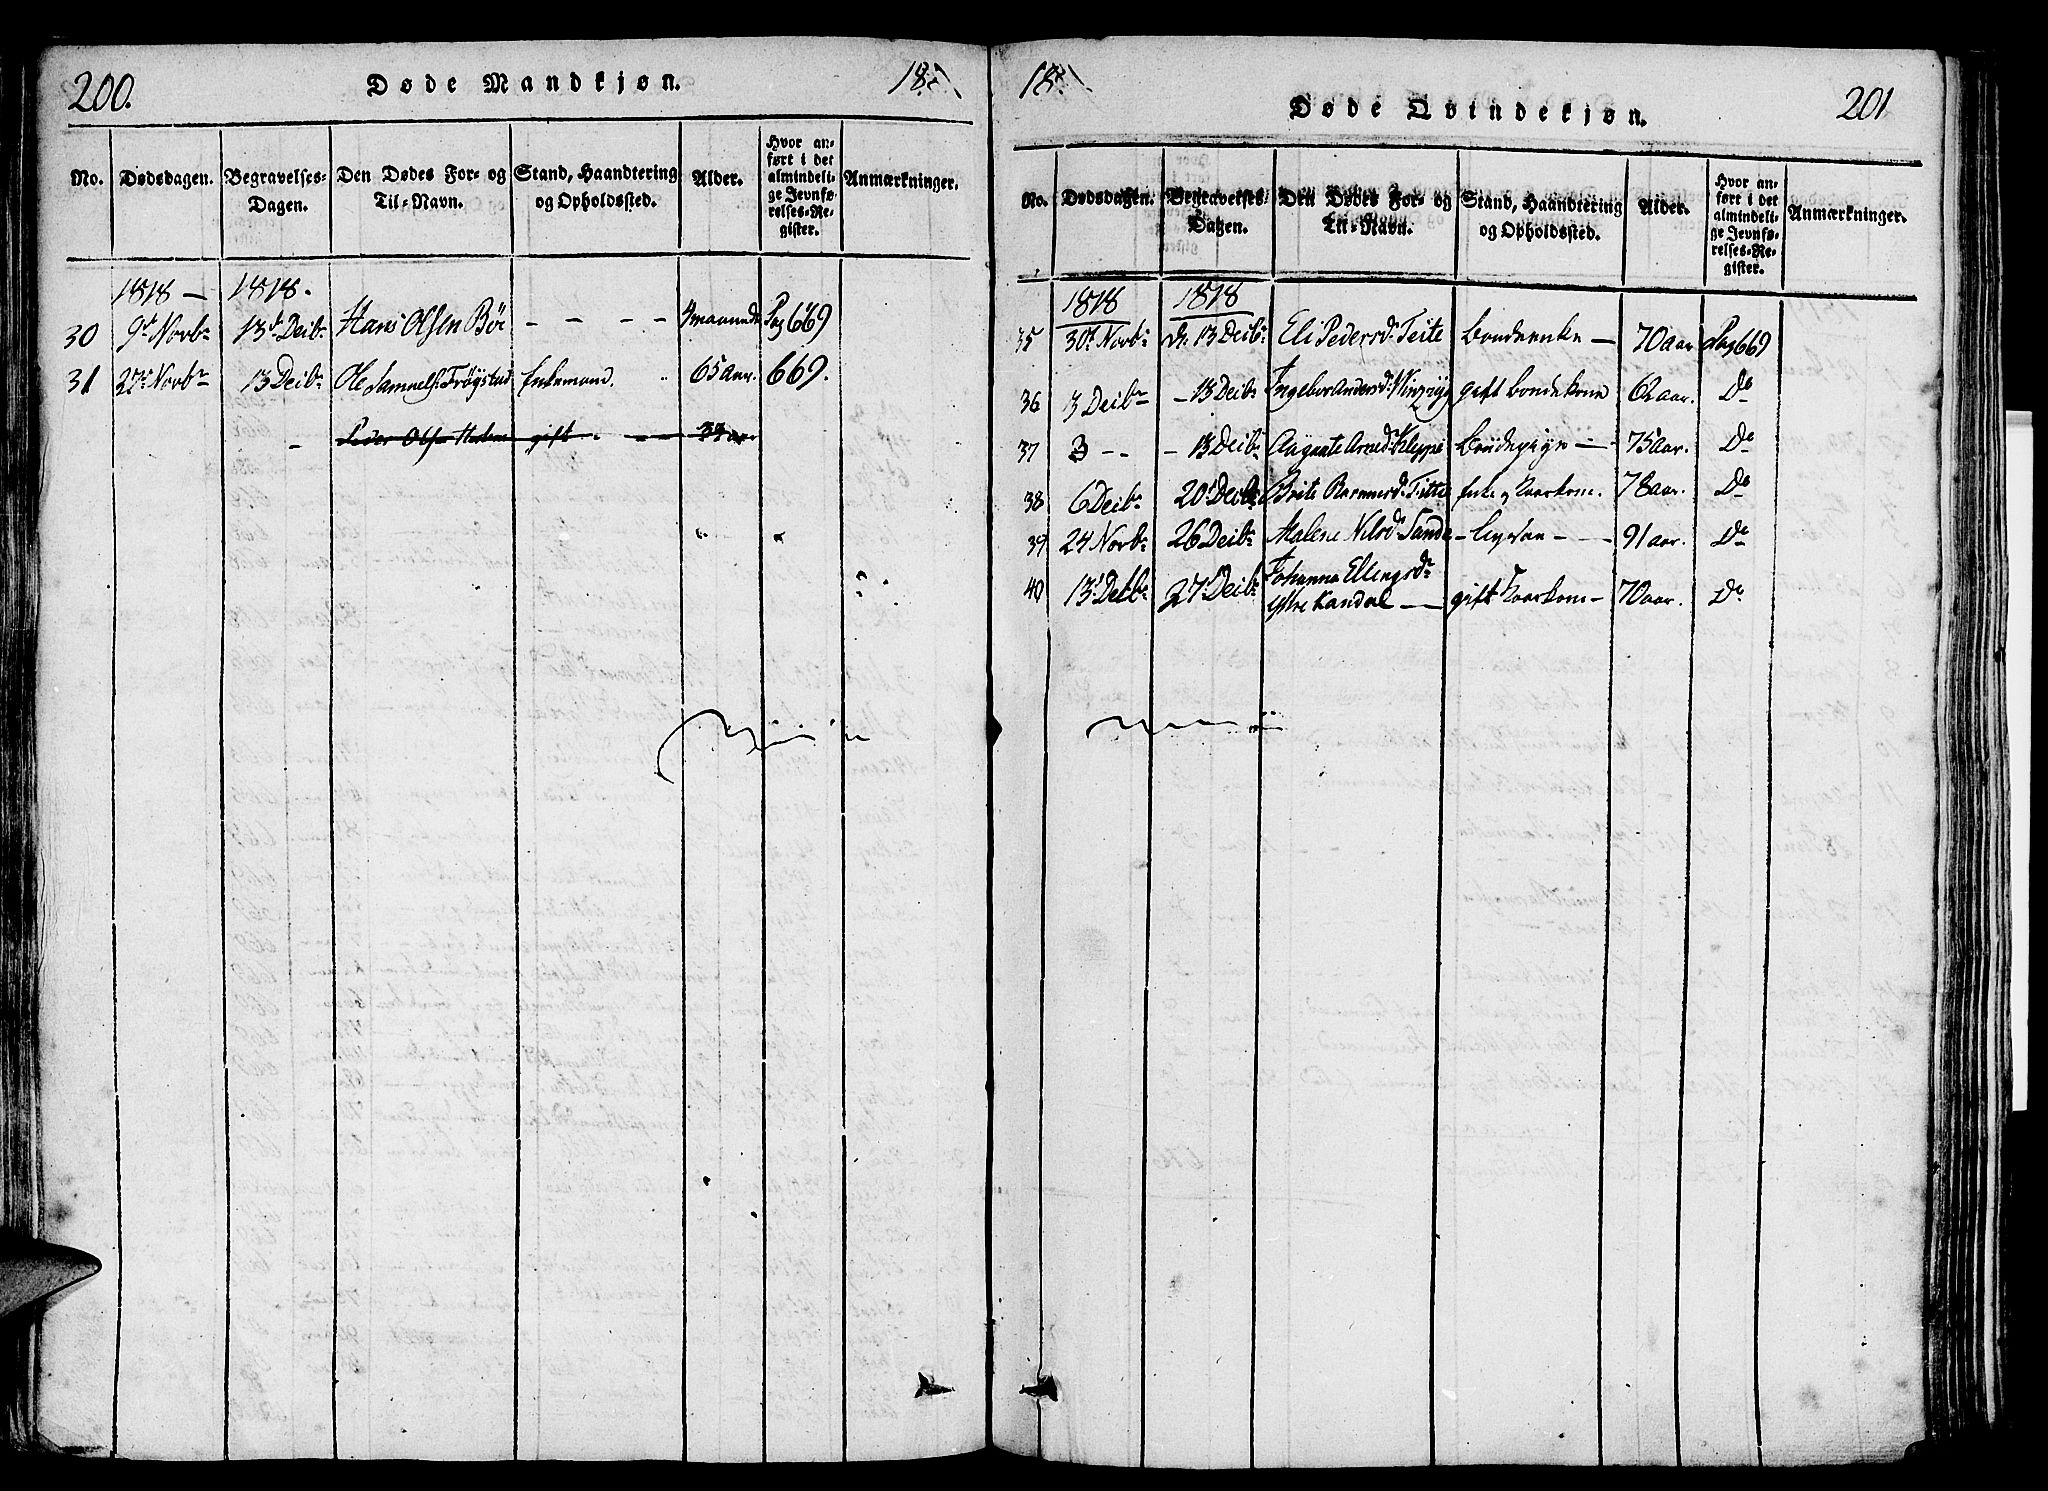 200.
Døde Mandkjøn.
18
No.
Dødsdagen.
Begravelses-
Dagen.
Den Dødes For- og
Til-Navn.
Stand, Haandtering
og Opholdssted.
Alder.
Hvor an-
ført i det
almindeli-
ge Jevnfø-
relses-Re-
gister.
Anmærkninger.
1818 — 1818.
30 9d Novbr 13d Deibr Hans Olsen Böe — — — — 4 maaneder Pag 669
31 27d Novbr 13 Deibr Ole Samuels. Tröystad Enkemand. 65 aar. 669.
Peder Olsen gift 39 aar
18
Døde Qvindekjøn.
201
No.
Dødsdagen.
Begravelses-
Dagen.
Den Dødes For- og
Til-Navn.
Stand, Haandtering
og Opholdssted.
Alder.
Hvor an-
ført i det
almindeli-
ge Jevnfø-
relses-Re-
gister.
Anmærkninger.
1818 1818
35 30d Novbr d. 13 Deibr Eli Pedersd. Teite bondeenke — 70 aar Pag 669
36 3 Deibr — 13 Deibr Ingebor Andersd. gift bondekone 62 aar. Do
37 3 — — — 13 Deibr Aagaate Arned. Kleppe — 75 aar. Do
38 6 Deibr 20d Deibr Brite Rasmusd. Teite enke og kaarkone. 78 aar. Do
39 24 Novbr 26 Deibr Malene Nilsd. Sande — — — 91 aar. Do
40 13d Deibr 27d Deibr Johanna Ellingsdr
ystre Kandal — gift kaarkone — 70 aar. Do